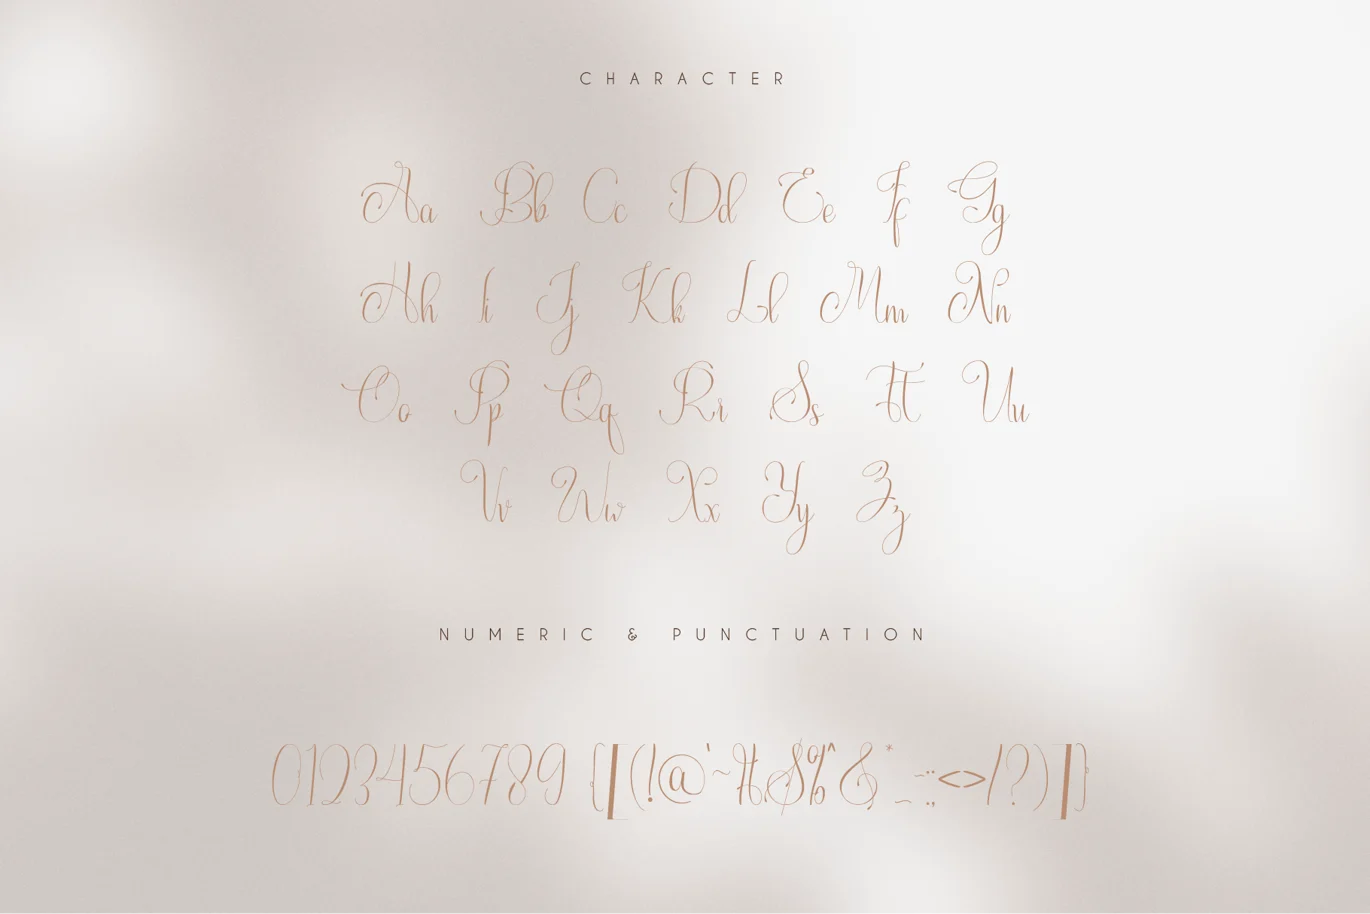 CHARACTER
Aa Bb Cc Dd Ee Ff Gg
Hh Ii Jj Kk Ll Mm Nn
Oo Pp Qq Rr Ss Tt Uu
Vv Ww Xx Yy Zz
NUMERIC & PUNCTUATION
0123456789 {[(!@`~#$%^&*_-:;<>/?)]}